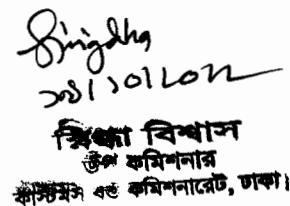 Snigdha
স্নিগ্ধা বিশ্বাস
উপ কমিশনার
কাস্টমস বন্ড কমিশনারেট, ঢাকা।